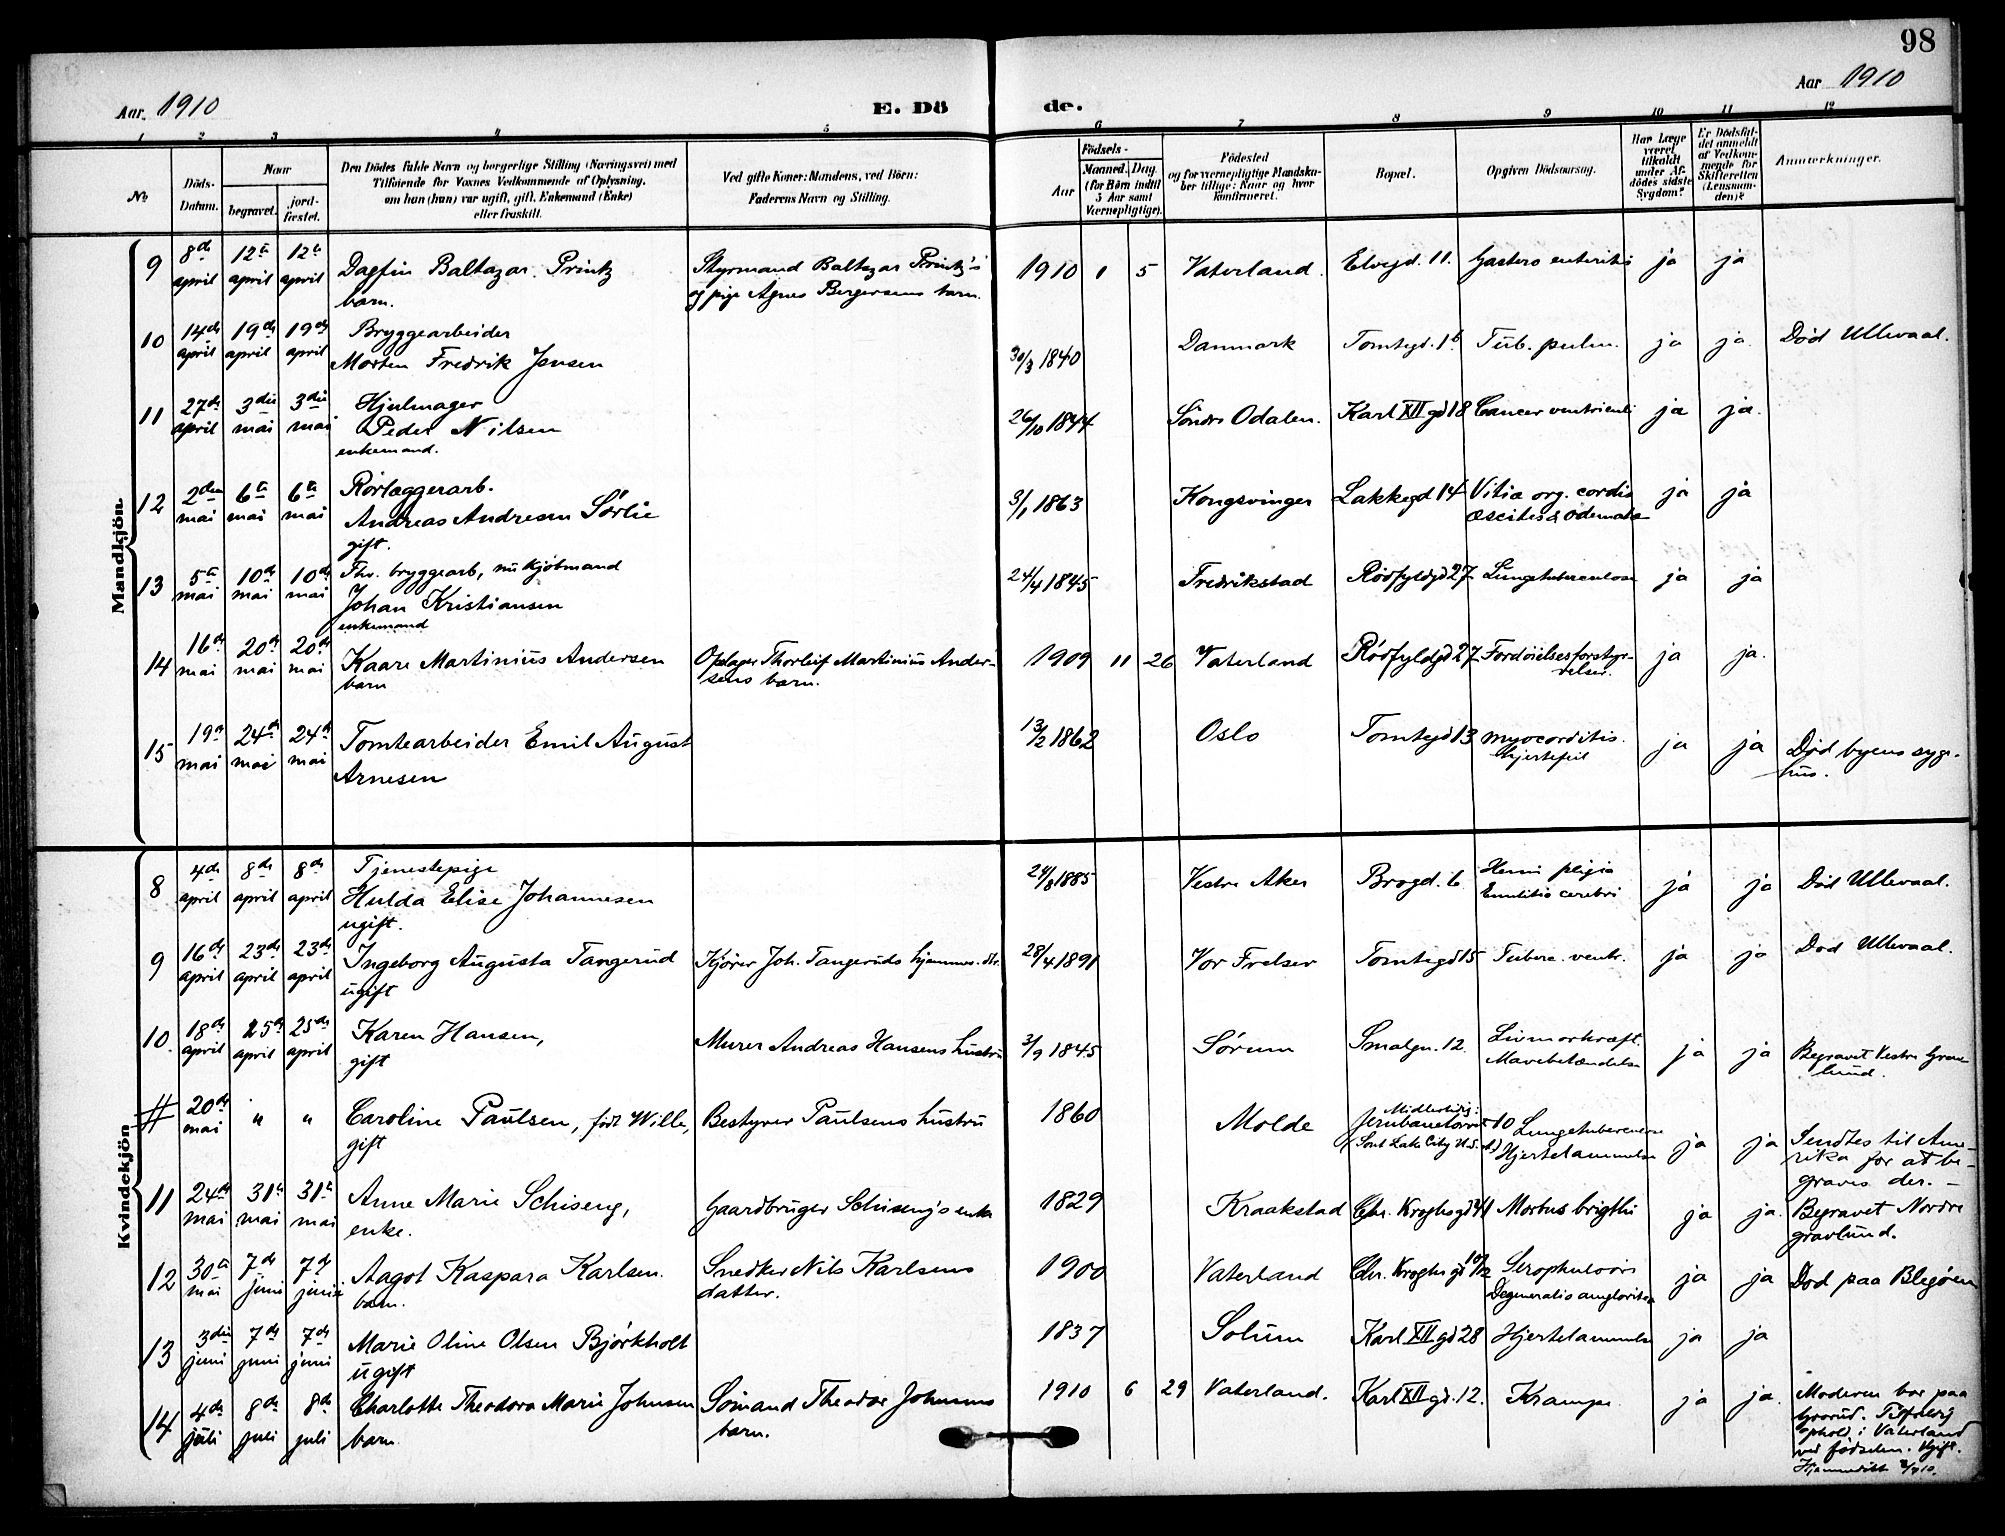 98
Aar. 1910
E. Dö
de.
Aar 1910
1 2 3 4 5 6 7 8 9 10 11 12
No
Döds-
Datum.
Naar
begravet.
jord-
fæstet.
Den Dödes fulde Navn og borgerlige Stilling (Næringsvei) med
Tilföiende for Voxnes Vedkommende af Oplysning,
om han (hun) var ugift, gift, Enkemand (Enke)
eller fraskilt.
Ved gifte Koner: Mandens, ved Börn:
Faderens Navn og Stilling.
Födsels-
Aar
Maaned. Dag.
(for Börn indtil
5 Aar samt
Værnepligtige).
Födested
og for værnepligtige Mandska-
ber tillige: Naar og hvor
konfirmeret.
Bopæl.
Opgiven Dödsaarsag.
Har Læge
været
tilkaldt
under Af-
dödes sidste
Sygdom?
Er Dödsfal-
det anmeldt
af Vedkom-
mende for
Skifteretten
(Lensman-
den)?
Anmærkninger.
Mandkjön.
9 8de april 12te april 12te april Dagfin Baltazar Printz
barn.
Styrmand Baltazar Printz's
og pige Agnes Bergersens barn.
1910 1 5 Vaterland. Elvegd. 11. Gastero enteritis ja ja
10 14de april 19de april 19de april Bryggearbeider
Morten Fredrik Jensen
30/3 1840 Danmark Tomtegd. 1b Tub. pulm. ja ja. Död Ullevaal.
11 27de april 3die mai 3die mai Hjulmager
Peder Nilsen
enkemand.
26/10 1844 Söndre Odalen. Karl XII gd 18 Cancer ventriculi ja ja.
12 2den mai 6te mai 6te mai Rörlæggerarb.
Andreas Andresen Sörlie
gift.
3/1 1863 Kongsvinger Lakkegd 14 Vitia org. cordis
ascites & ödemata ja ja
13 5te mai 10de mai 10de mai Fhv. bryggearb, nu kjöbmand
Johan Kristiansen
enkemand
24/4 1845 Fredrikstad Rödfyldgd 27 Lungetuberculose ja ja
14 16de mai 20de mai 20de mai Kaare Martinius Andersen
barn
Oplager Thorleif Martinius Ander-
sens barn.
1909 11 26 Vaterland Rödfyldgd 27 Fordöielsesforstyr-
relser. ja ja.
15 19de mai 24de mai 24de mai Tomtearbeider Emil August
Arnesen
13/2 1862 Oslo Tomtegd 13 myocorditis.
Hjertefeil ja ja Död byens syge-
hus.
Kvindekjön
8 4de april 8de april 8de april Tjenestepige
Hulda Elise Johannesen
ugift.
24/8 1885 Vestre Aker Brogd. 6 Hemi pligia
cerebri ja ja Död Ullevaal.
9 16de april 23de april 23de april Ingeborg Augusta Tangerud
ugift
Kjörer Joh. Tangeruds hjemmev. dtr.
28/4 1891 Vor Frelser Tomtegd 15 Tuberc. ventr. ja ja Död Ullevaal.
10. 18de april 25de april 25de april Karen Hansen,
gift
Murer Andreas Hansens hustru
3/9 1845 Sörum Smalgn. 12. Livmorkræft.
Mavebetændelse ja ja Begravet Vestre Grav-
lund.
# 20de mai " " Caroline Paulsen, född Wille,
gift
Bestyrer Paulsens hustru
1860 Molde Midlertidig:
Jernbanetorvet 10
(Sout Lake City U.S.A.) Lungetuberculose
Hjertelammelse ja ja Sendtes til Ame-
rika for at be-
graves der. -
11 24de mai 31te mai 31te mai Anne Marie Schiseng,
enke.
Gaardbruger Schisengs enke
1829 Kraakstad Chr. Kroghs gd 41 Morbus brigthii ja ja. Begravet Nordre
gravlund.
12 30te mai 7de juni 7de juni Aagot Kaspara Karlsen.
barn.
Snedker Nils Karlsens
datter.
1900 Vaterland Chr. Kroghs gd
Degeneratio ja ja Död paa Blegöen
13 3die juni 7de juni 7de juni Marie Oline Olsen Björkholt
ugift
1837 Solum Karl XII gd 28 Hjertelammelse ja ja
14 4de juli 8de juli 8de juli Charlotte Theodora Marie Johnsen
barn
Sömand Theodor Johnsens
barn.
1910 6 29 Vaterland. Karl XII gd. 12. Krampe ja ja. Moderen bor paa
Grorud. Tilfældig
ophold i Vaterland
ved födselen. Ugift.